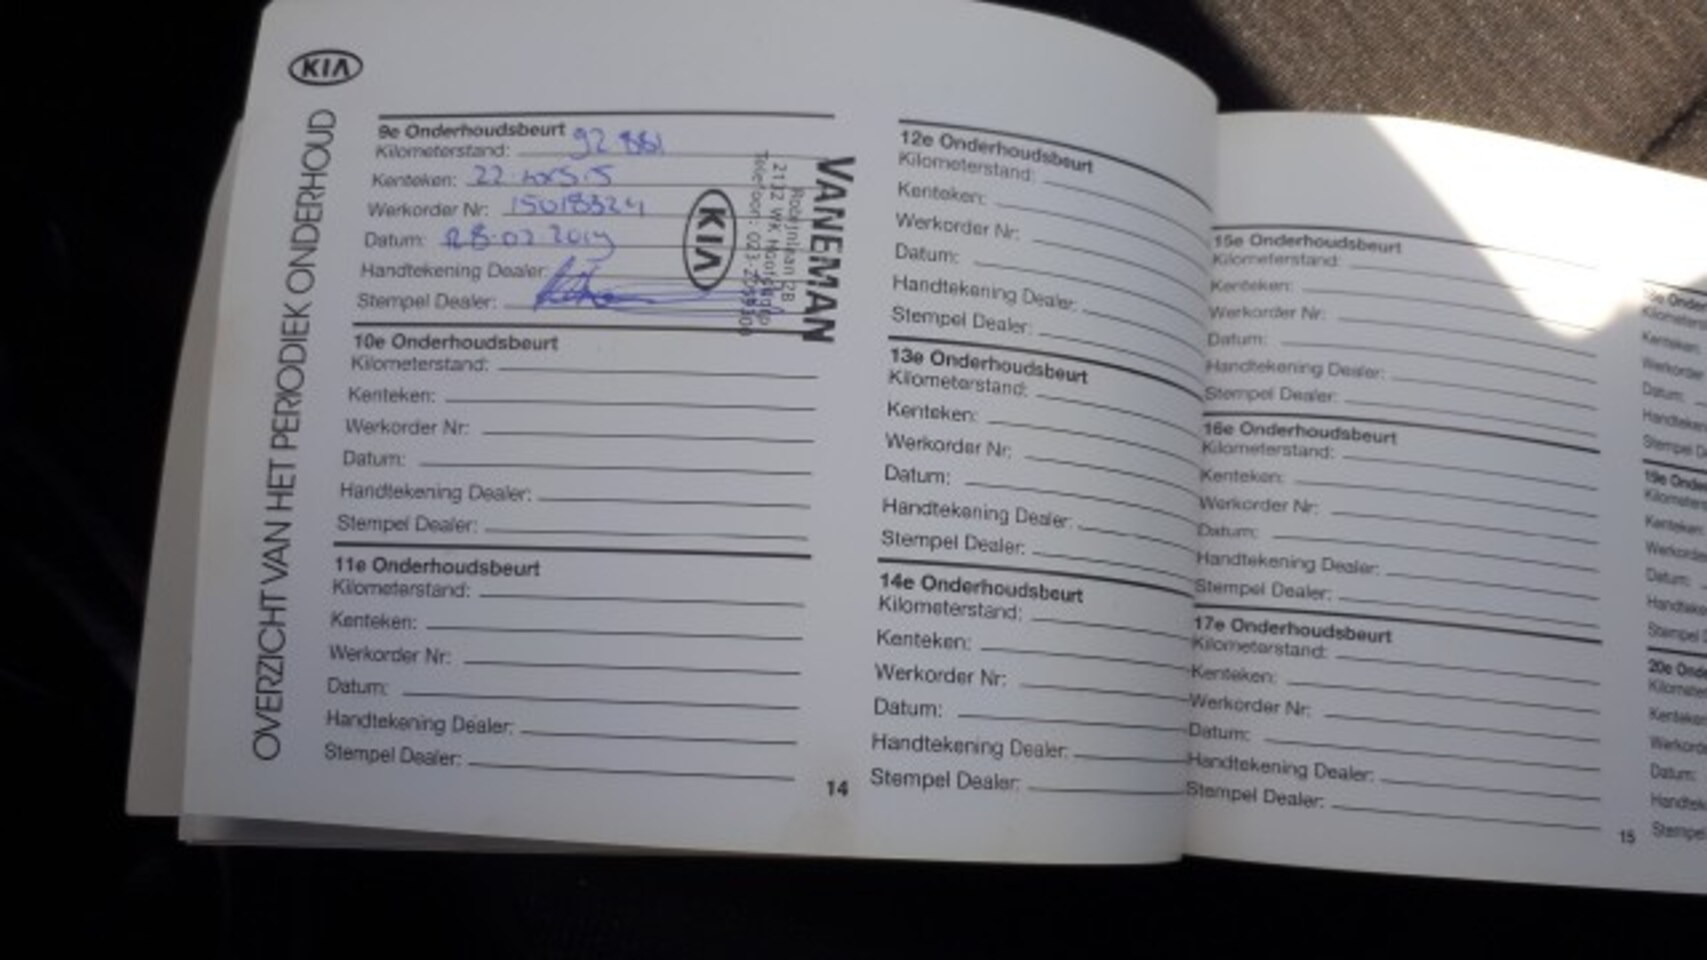 KIA
OVERZICHT VAN HET PERIODIEK ONDERHOUD
9e Onderhoudsbeurt
Kilometerstand: 92 881
Kenteken: 22
Werkorder Nr: 15018324
Datum: 28-02-2019
Handtekening Dealer:
Stempel Dealer:
VANEMAN
2132 WK Hoofddorp
Telefoon: 023-
KIA
10e Onderhoudsbeurt
Kilometerstand:
Kenteken:
Werkorder Nr:
Datum:
Handtekening Dealer:
Stempel Dealer:
11e Onderhoudsbeurt
Kilometerstand:
Kenteken:
Werkorder Nr:
Datum:
Handtekening Dealer:
Stempel Dealer:
14
12e Onderhoudsbeurt
Kilometerstand:
Kenteken:
Werkorder Nr:
Datum:
Handtekening Dealer:
Stempel Dealer:
13e Onderhoudsbeurt
Kilometerstand:
Kenteken:
Werkorder Nr:
Datum:
Handtekening Dealer:
Stempel Dealer:
14e Onderhoudsbeurt
Kilometerstand:
Kenteken:
Werkorder Nr:
Datum:
Handtekening Dealer:
Stempel Dealer:
15e Onderhoudsbeurt
Kilometerstand:
Kenteken:
Werkorder Nr:
Datum:
Handtekening Dealer:
Stempel Dealer:
16e Onderhoudsbeurt
Kilometerstand:
Kenteken:
Werkorder Nr:
Datum:
Handtekening Dealer:
Stempel Dealer:
17e Onderhoudsbeurt
Kilometerstand:
Kenteken:
Werkorder Nr:
Datum:
Handtekening Dealer:
Stempel Dealer:
15
Kenteken:
Werkorder
Datum:
19e Onde
Kenteken:
Datum:
20e Onde
Datum: